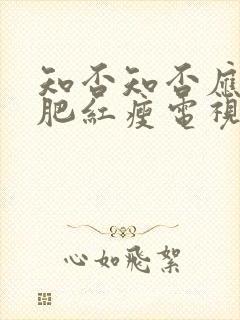 知否知否應
肥紅瘦電視
心如飛絮